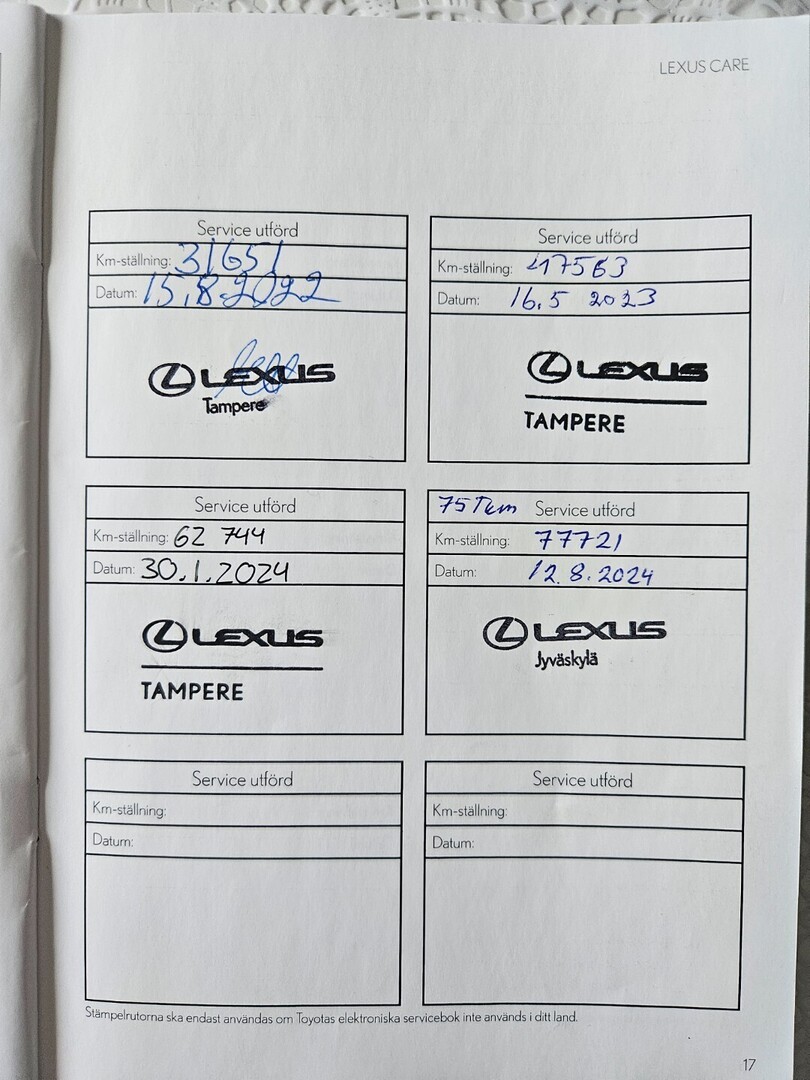 LEXUS CARE
Service utförd
Km-ställning: 31651
Datum: 15.8.2022
LEXUS
Tampere
Service utförd
Km-ställning: 47563
Datum: 16.5 2023
LEXUS
TAMPERE
Service utförd
Km-ställning: 62 744
Datum: 30.1.2024
LEXUS
TAMPERE
75Tkm Service utförd
Km-ställning: 77721
Datum: 12.8.2024
LEXUS
Jyväskylä
Service utförd
Km-ställning:
Datum:
Service utförd
Km-ställning:
Datum:
Stämpelrutorna ska endast användas om Toyotas elektroniska servicebok inte används i ditt land.
17